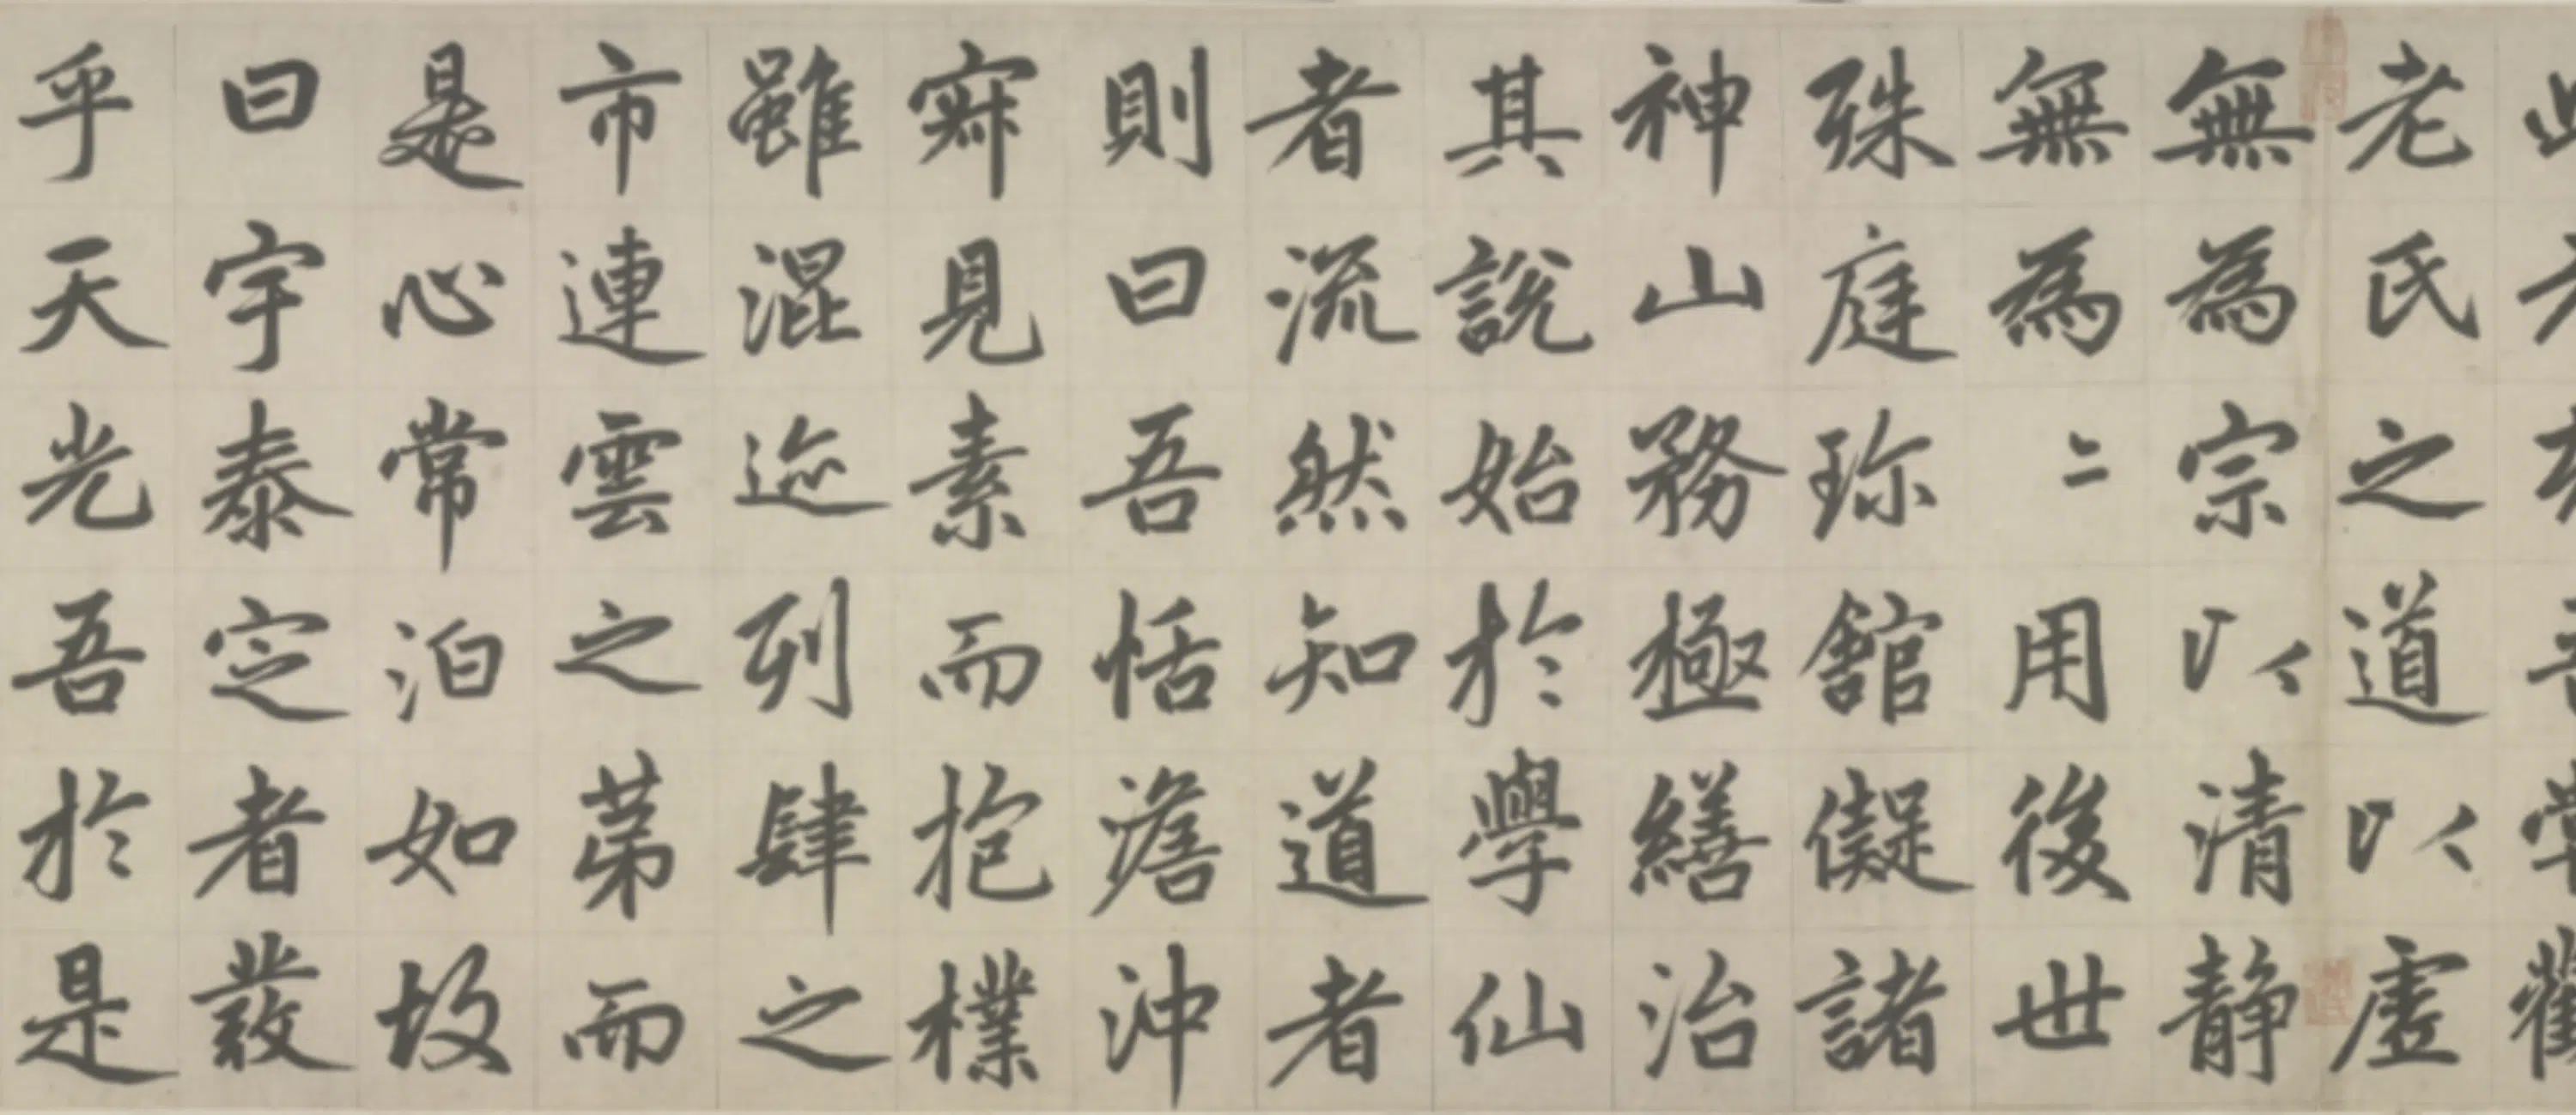 老氏之道以虛
無為宗以清静
無為〻用後世
殊庭珎舘儗諸
神山務極繕治
其說始於學仙
者流然知道者
則曰吾恬澹沖
寂見素而抱樸
雖混迹列肆之
市連雲之苐而
是心常泊如故
曰宇泰定者發
乎天光吾於是